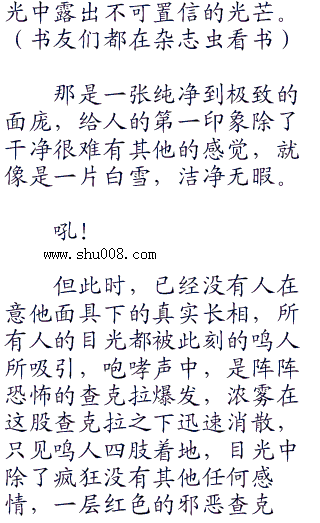 光中露出不可置信的光芒。
（书友们都在杂志虫看书）
那是一张纯净到极致的
面庞，给人的第一印象除了
干净很难有其他的感觉，就
像是一片白雪，洁净无暇。
吼！
www.shu008.com
但此时，已经没有人在
意他面具下的真实长相，所
有人的目光都被此刻的鸣人
所吸引，咆哮声中，是阵阵
恐怖的查克拉爆发，浓雾在
这股查克拉之下迅速消散，
只见鸣人四肢着地，目光中
除了疯狂没有其他任何感
情，一层红色的邪恶查克